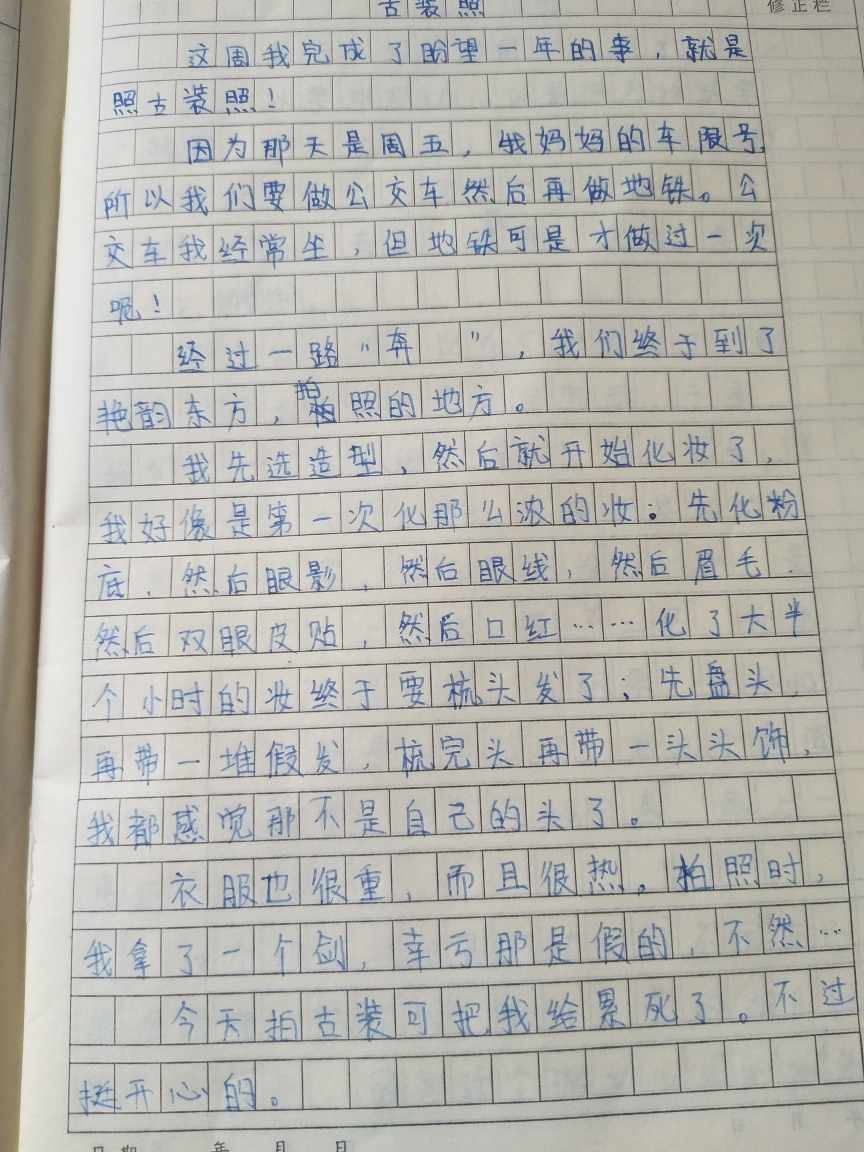 古装照
修正栏
这周我完成了盼望一年的事，就是
照古装照！
因为那天是周五，我妈妈的车限号，
所以我们要做公交车然后再做地铁。公
交车我经常坐，但地铁可是才做过一次
呢！
经过一路“奔　”，我们终于到了
艳韵东方，拍照的地方。
我先选造型，然后就开始化妆了，
我好像是第一次化那么浓的妆：先化粉
底，然后眼影，然后眼线，然后眉毛，
然后双眼皮贴，然后口红……化了大半
个小时的妆终于要梳头发了；先盘头，
再带一堆假发，梳完头再带一头头饰，
我都感觉那不是自己的头了。
衣服也很重，而且很热。拍照时，
我拿了一个剑，幸亏那是假的，不然…
今天拍古装可把我给累死了。不过
挺开心的。
日期　年　月　日